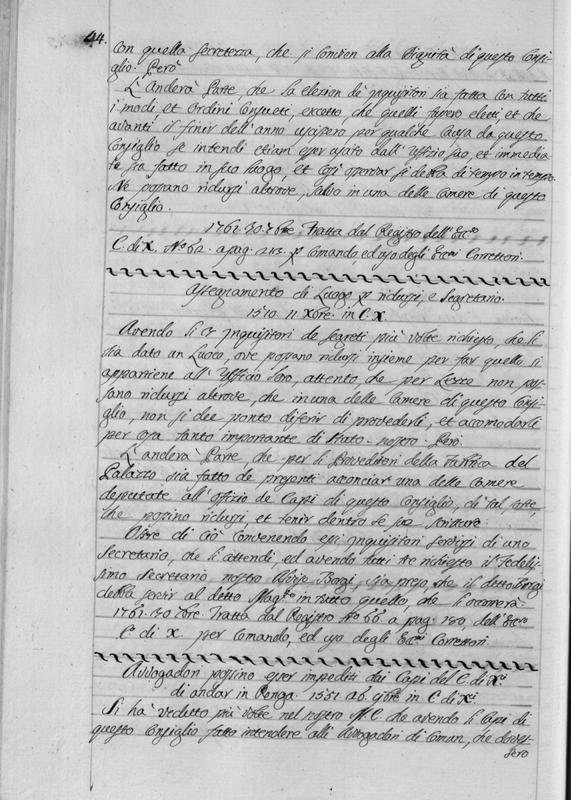 44.
con quella secretezza, che si convien alla Dignità di questo Consi-
glio. Però
L'anderà Parte, che la elezion de Inquisitori sia fatta con tutti
i modi, et Ordini Consueti, excetto, che quelli fussero eletti, et che
avanti il finir dell'anno uscissero per qualche causa da questo
Consiglio se intendi etiam esser usciti dall'Uffizio suo, et immedia-
te sia fatto in suo luogo, et così osservar si debba di tempo in tempo.
Nè possano ridursi altrove, salvo in una delle Camere di questo
Consiglio.
1762. 30. 7bre. Tratta dal Registro dell'Ecc:so
C. di X. No. 62. a pag. 213. p Comando, ed uso degli Ecc:mi Correttori.
Assegnamento di Luogo p ridursi, e Segretario.
1570. 11. Xbre. in C. X.
Avendo li 3 Inquisitori de segreti più volte richiesto, che li
sia dato un Luoco, ove possano ridursi insieme per far quello si
appartiene all'Uffizio loro, attento, che per Leze non pos-
sano ridursi altrove, che in una delle Camere di questo Consi-
glio, non si dee ponto diferir di provederli, et accomodarli
per cosa tanto importante di Stato nostro. Però.
L'anderà Parte che per li Proveditori della Fabrica del
Palazzo sia fatto de presenti acconciar una delle Camere
deputate all'offizio de Capi di questo Consiglio, di tal sorte,
che possino ridursi, et tenir dentro le sue scritture.
Oltre di ciò convenendo essi Inquisitori servirsi di uno
Secretario, che li attendi, ed avendo tutti tre richiesto il Fedelis-
simo Secretario nostro Alvise Borgi, sia preso che il detto Borgi
debba servir al detto Mag:to in tutto quello, che li occorrerà.
1762. 30. 7bre. Tratta dal Registro No. 66. a pag. 180. dell'Ecc:so
C. di X. per Comando, ed uso degli Ecc:mi Correttori.
Avvogadori possino esser impediti dai Capi del C. di X:ci
di andar in Renga. 1551. 26. 9bre in C. di X:ci
Si hà veduto più volte nel nostro M. C. che avendo li Capi di
questo Consiglio fatto intendere alli Avvogadori di Comun, che doves-
sero